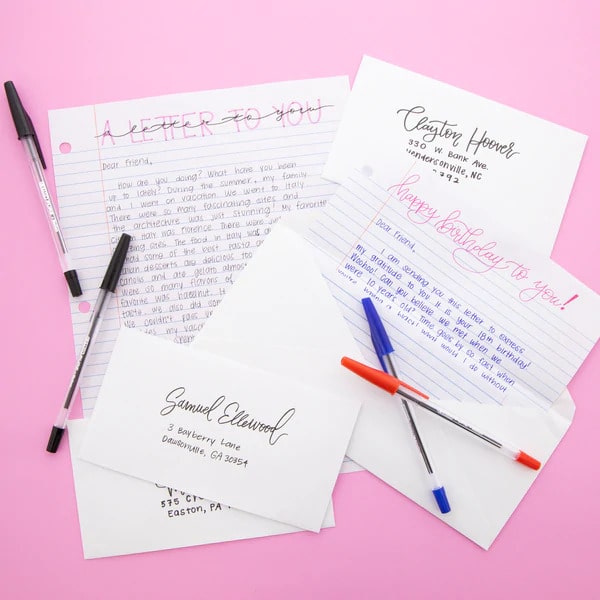 A LETTER TO YOU
a letter to you
Dear Friend,
How are you doing? What have you been
up to lately? During the summer, my family
and I went on vacation. We went to Italy
There were so many fascinating sites and
the architecture was just stunning! My favorite
Italy was Florence. There were
sites. The food in Italy was
had some of the best pasta
desserts are delicious too
and ate gelato almost
were so many flavors
favorite was hazelnut.
we also did some
We couldn't pass
my vacation
Clayton Hoover
330 W. Bank Ave.
Hendersonville, NC
792
happy birthday to you!
Dear Friend,
I am sending you this letter to express
my gratitude to you. It is your 18th birthday!
Woohoo! Can you believe we met when we
were 10 years old? Time goes by so fast when
would I do without
Samuel Ellewood
3 Bayberry Lane
Dawsonville, GA 30354
575
Easton, PA